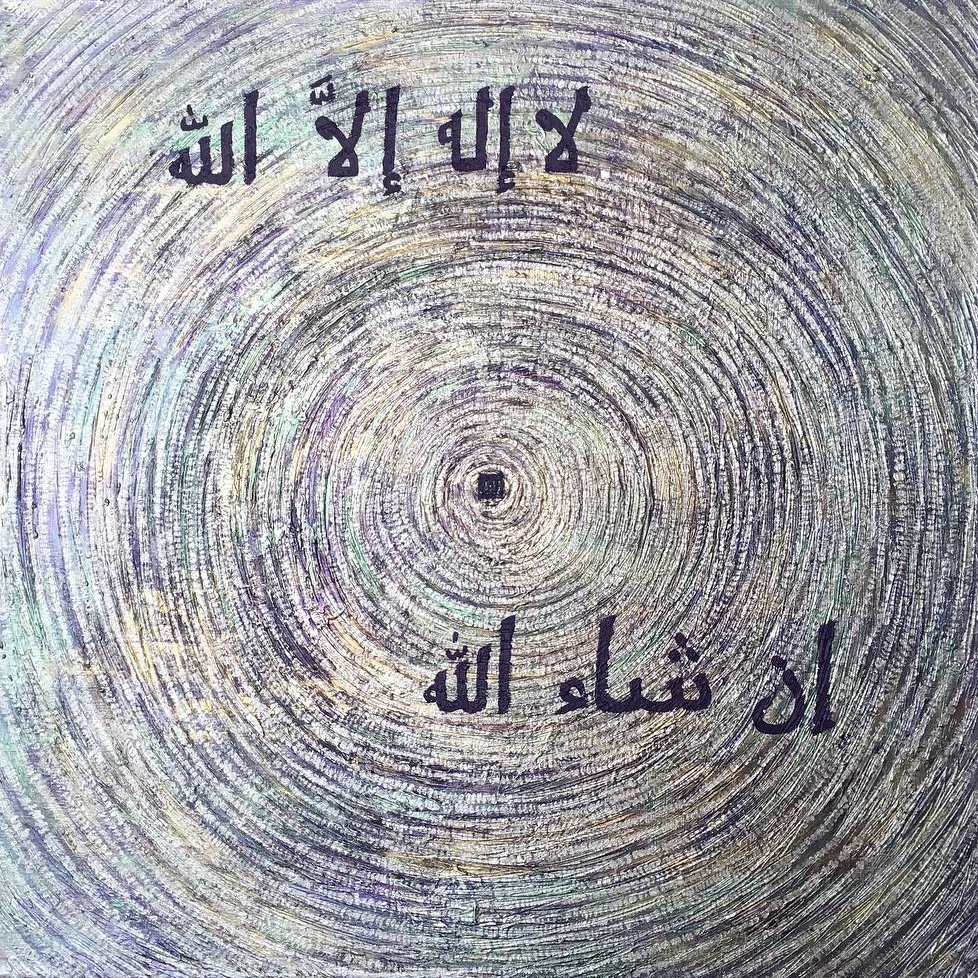 لا إله إلاَّ الله
إن شاء الله